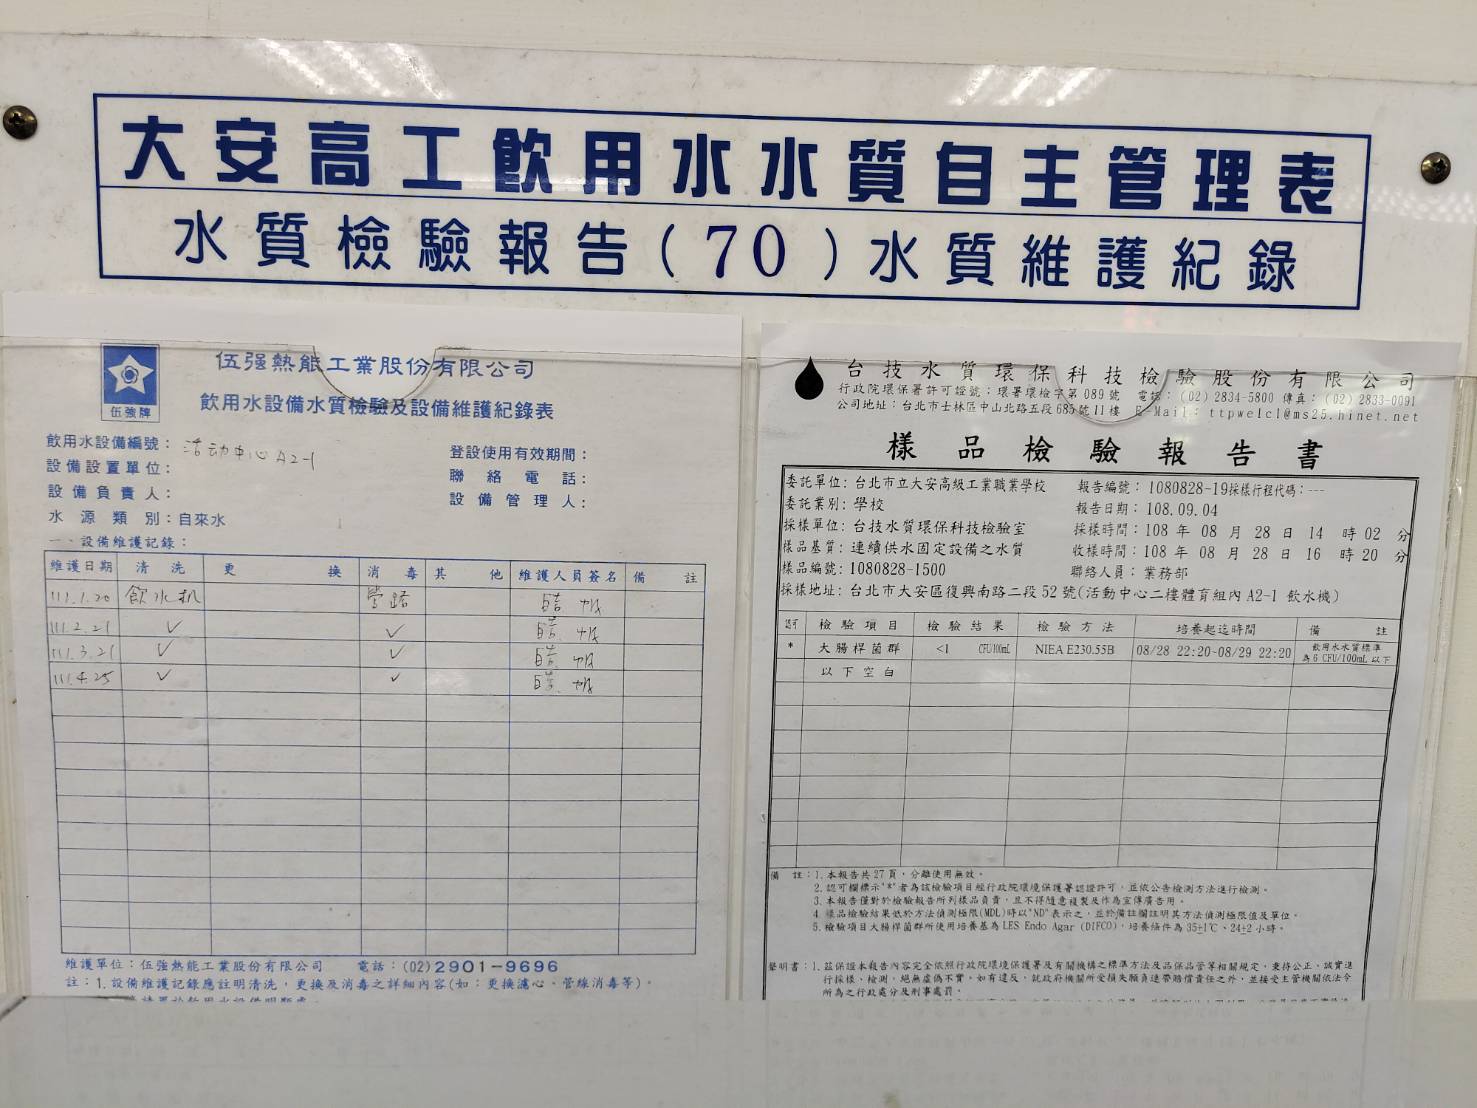 大安高工飲用水水質自主管理表
水質檢驗報告(70)水質維護紀錄
伍強牌
伍强熱能工業股份有限公司
飲用水設備水質檢驗及設備維護紀錄表
飲用水設備編號：活动中心 A2-1
設備設置單位：
設備負責人：
水源類別：自來水
登設使用有效期間：
聯絡電話：
設備管理人：
一、設備維護記錄：
維護日期 清洗 更換 消毒 其他 維護人員簽名 備註
111.1.20 飲水机 管路
111.2.21 ✓ ✓
111.3.21 ✓ ✓
111.4.25 ✓ ✓
維護單位：伍強熱能工業股份有限公司 電話：(02)2901-9696
註：1.設備維護記錄應註明清洗，更換及消毒之詳細內容(如：更換濾心、管線消毒等)。
台技水質環保科技檢驗股份有限公司
行政院環保署許可證號：環署環檢字第089號 電話：(02) 2834-5800 傳真：(02) 2833-0091
公司地址：台北市士林區中山北路五段685號11樓 E-Mail：ttpwelcl@ms25.hinet.net
樣品檢驗報告書
委託單位：台北市立大安高級工業職業學校 報告編號：1080828-19採樣行程代碼：---
委託業別：學校 報告日期：108.09.04
採樣單位：台技水質環保科技檢驗室 採樣時間：108 年 08 月 28 日 14 時 02 分
樣品基質：連續供水固定設備之水質 收樣時間：108 年 08 月 28 日 16 時 20 分
樣品編號：1080828-1500 聯絡人員：業務部
採樣地址：台北市大安區復興南路二段52號(活動中心二樓體育組內 A2-1 飲水機)
認可 檢驗項目 檢驗結果 檢驗方法 培養起迄時間 備註
* 大腸桿菌群 <1 CFU/100mL NIEA E230.55B 08/28 22:20-08/29 22:20 飲用水水質標準為6 CFU/100mL以下
以下空白
備註：1.本報告共27頁，分離使用無效。
2.認可欄標示"*"者為該檢驗項目經行政院環境保護署認證許可，並依公告檢測方法進行檢測。
3.本報告僅對於檢驗報告所列樣品負責，且不得隨意複製及作為宣傳廣告用。
4.樣品檢驗結果低於方法偵測極限(MDL)時以"ND"表示之，並於備註欄註明其方法偵測極限值及單位。
5.檢驗項目大腸桿菌群所使用培養基為LES Endo Agar (DIFCO)，培養條件為35±1℃、24±2小時。
聲明書：1.茲保證本報告內容完全依照行政院環境保護署及有關機構之標準方法及品保品管等相關規定，秉持公正、誠實進
行採樣、檢測，絕無虛偽不實，如有違反，就政府機關所受損失願負連帶賠償責任之外，並接受主管機關依法令
所為之行政處分及刑事處罰。